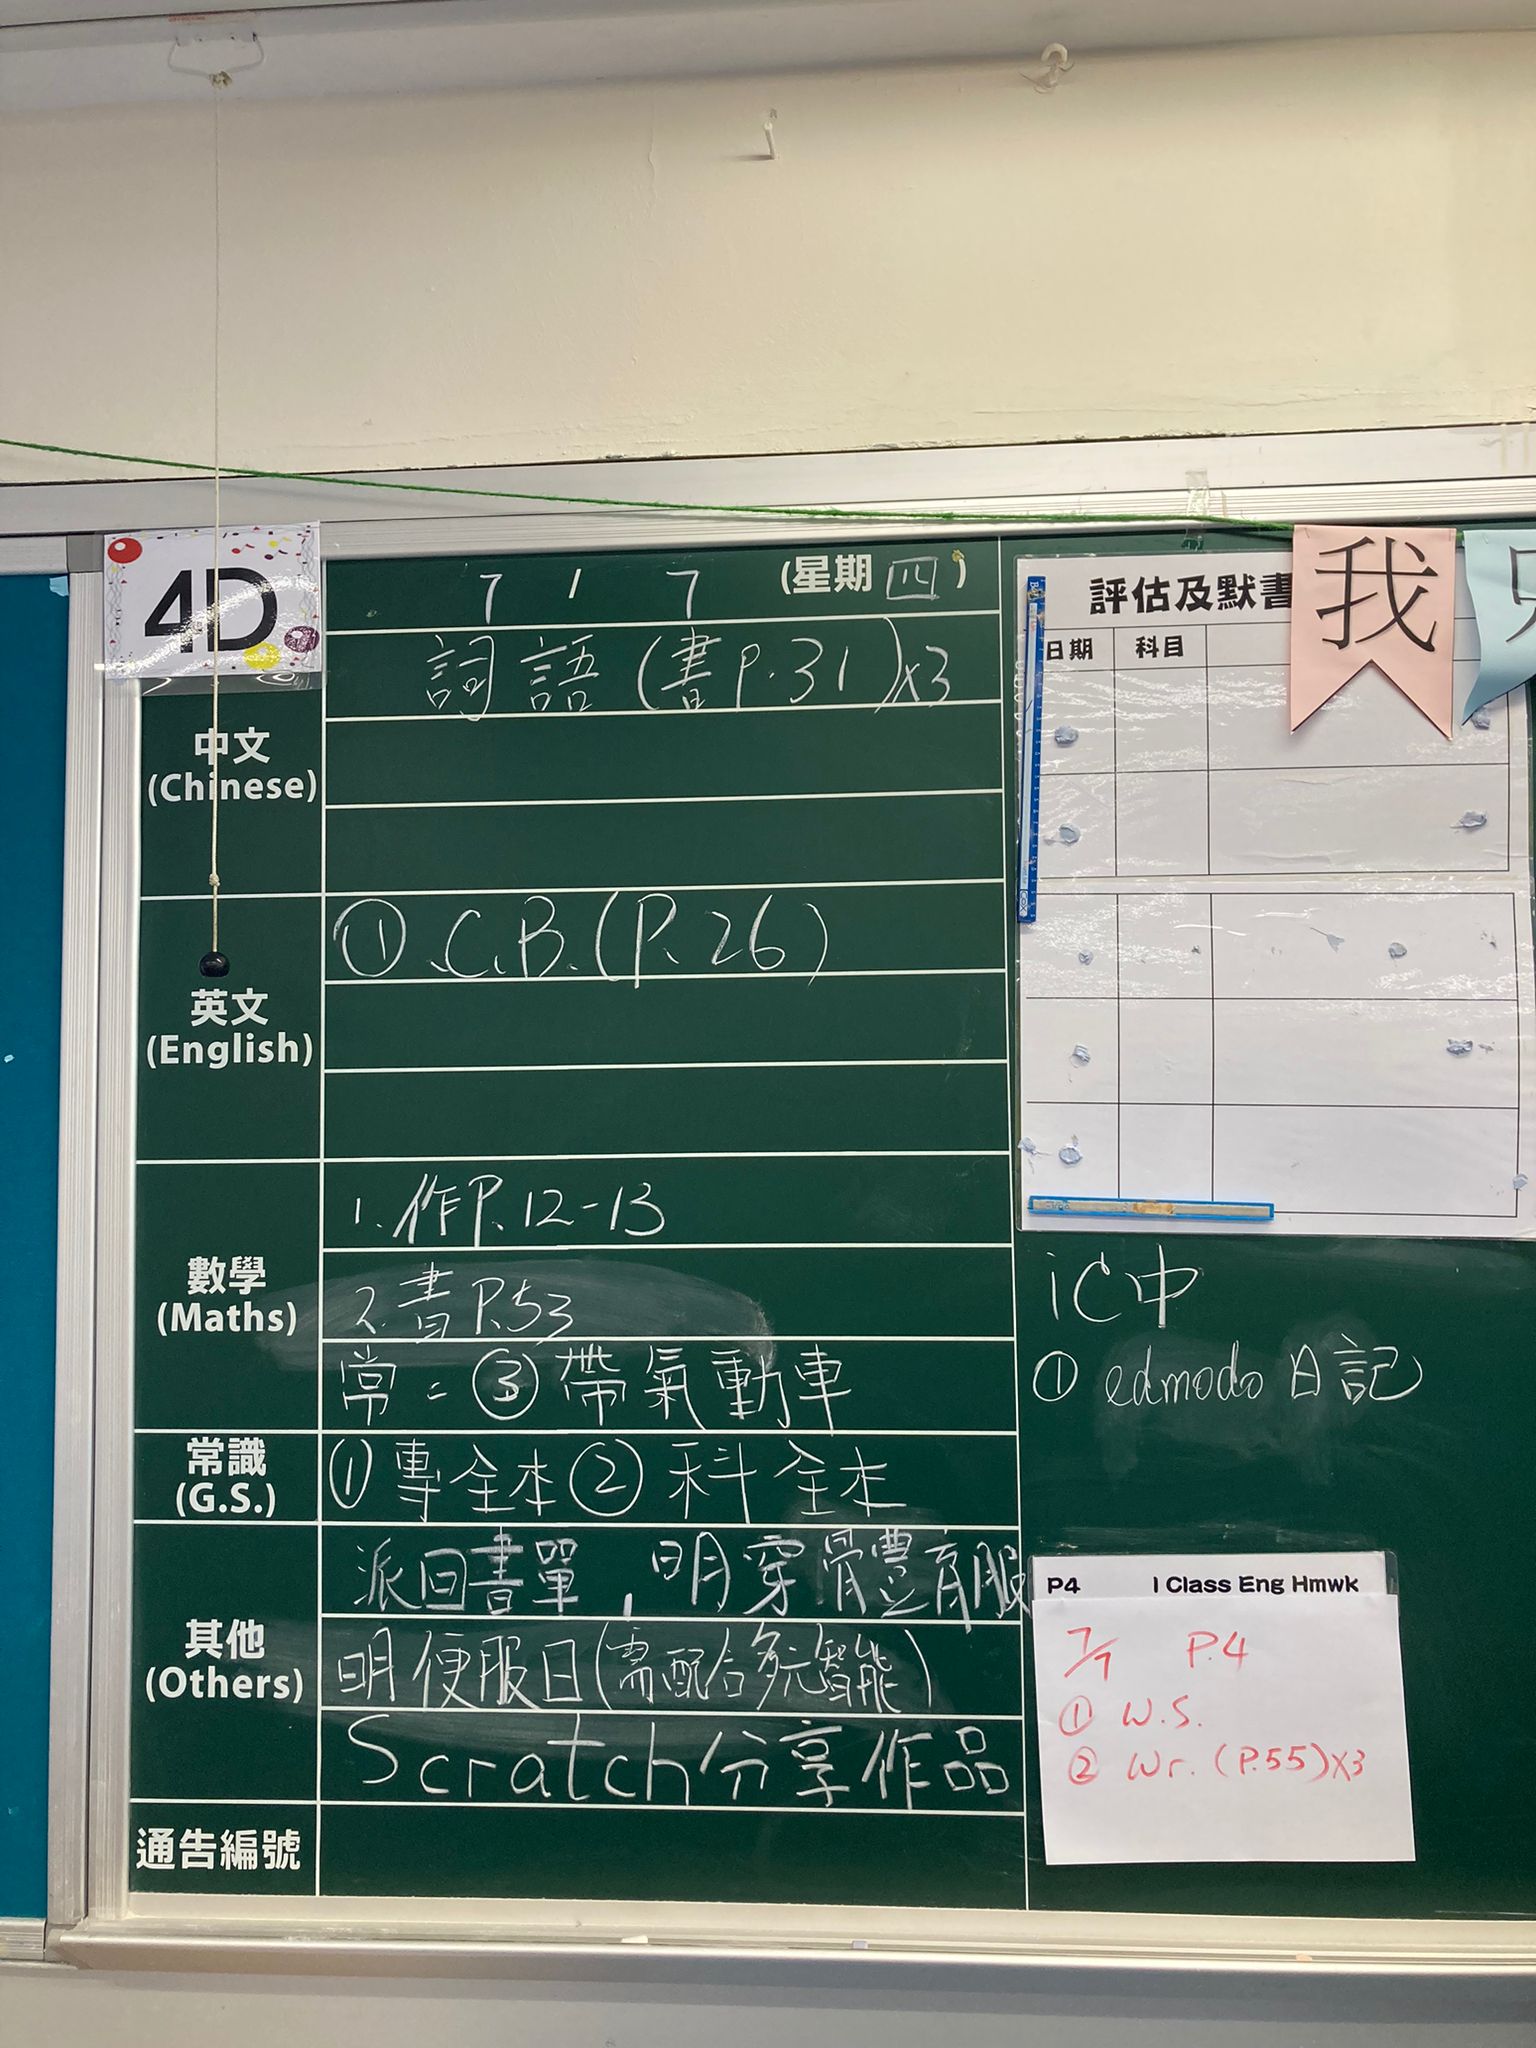 4D
7 / 7 (星期四)
中文
(Chinese)
詞語(書P.31)x3
英文
(English)
① C.B.(P.26)
數學
(Maths)
1. 作P.12-13
2. 書P.53
常:③帶氣動車
常識
(G.S.)
①專全本②科全本
其他
(Others)
派回書單,明穿體育服
明便服日(需配合多元智能)
Scratch分享作品
通告編號
評估及默書
日期 科目
我
iC中
① edmodo日記
P4 I Class Eng Hmwk
7/7 P.4
① W.S.
② Wr. (P.55)x3